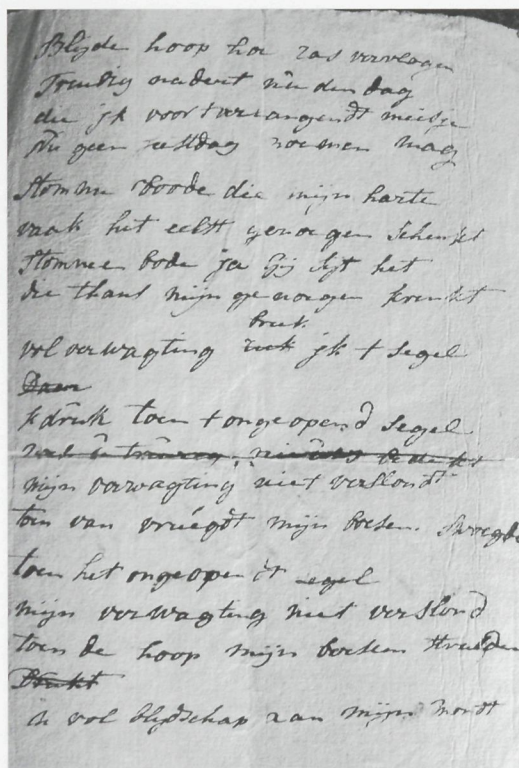 Blijde hoop hoe ras vervlogen
Treudig nadert nu den dag
die jk voor t verlangendt meisje
Nu geen feestdag noemen mag
Stomme boode die mijn harte
vaak het echtst genoegen schenkt
Stomme bode ja Gij sijt het
die thans mijn genoegen krenkt
bruk
vol verwagting jk t segel
Daar
k druk toen t ongeopend segel
mijn verwagting niet verslondt
toen van vreugdt mijn boesem
toen het ongeopendt segel
mijn verwagting niet verslond
toen de hoop mijn boesem
Drukt
u vol blijdschap aan mijn mondt